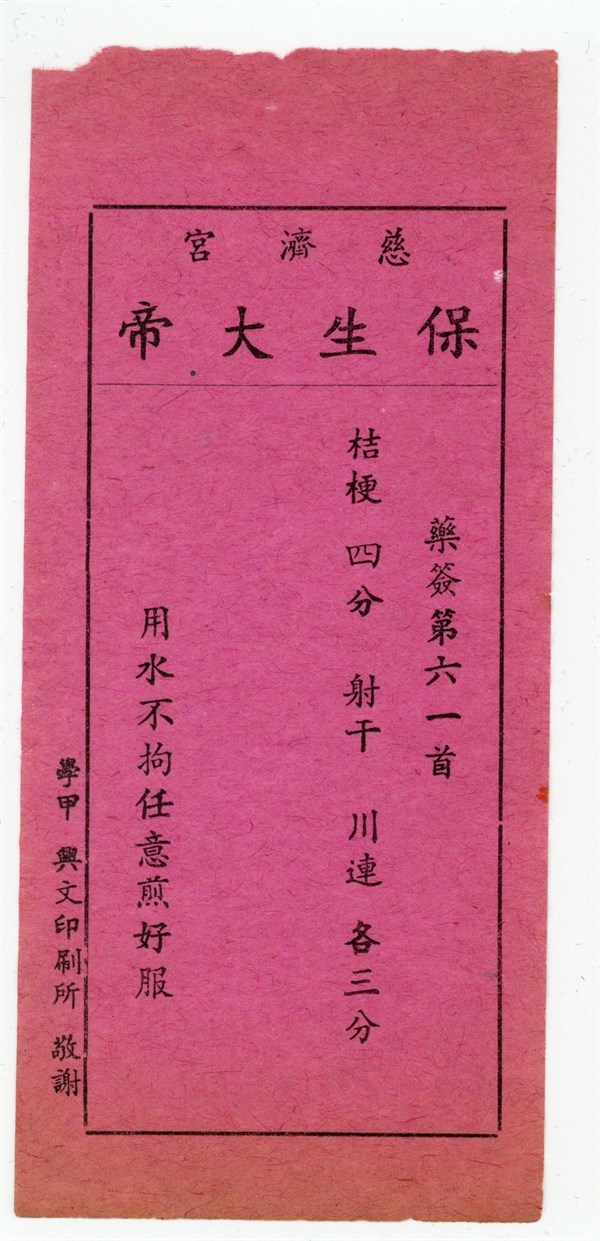 慈濟宮
保生大帝
藥簽第六一首
桔梗 四分 射干 川連 各三分
用水不拘任意煎好服
學甲 興文印刷所 敬謝